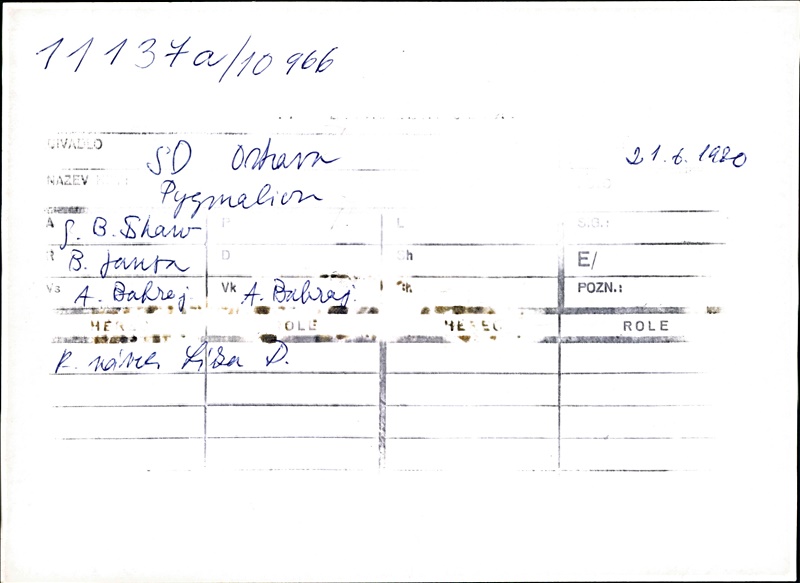 11137a/10966
DIVADLO SD Ostrava 21.6.1980
NÁZEV Pygmalion
A G. B. Shaw P L S.G.:
R B. Janta D Sh E/
Vs A. Bahrej Vk A. Babraj POZN.:
ROLE
K. návrh Líza D.